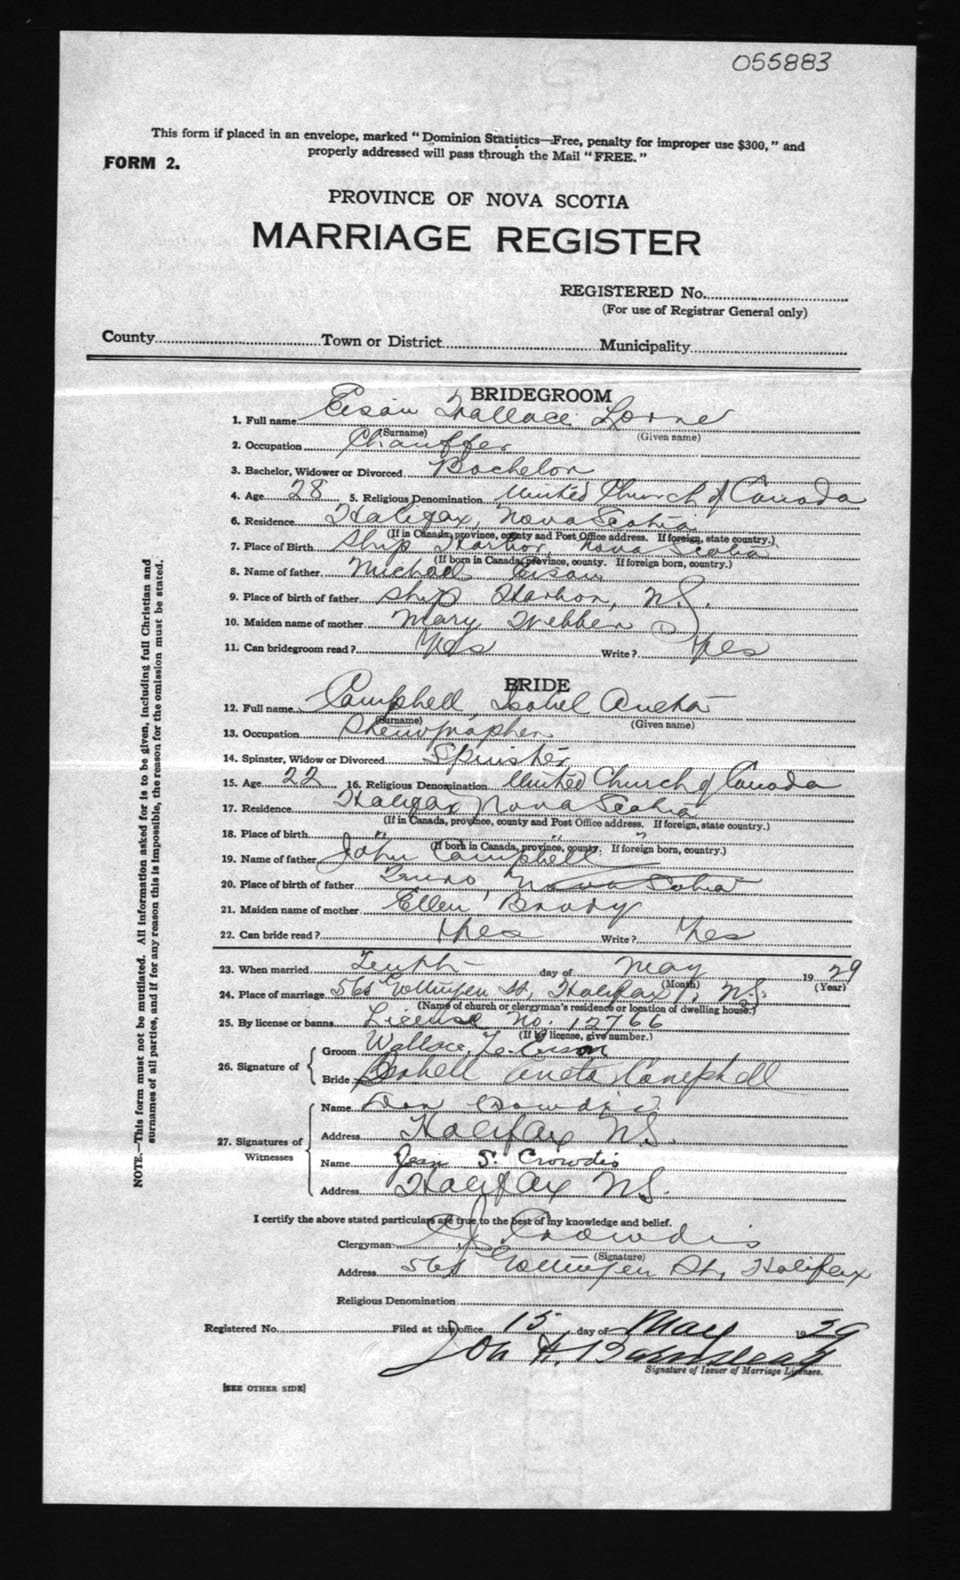 055883
This form if placed in an envelope, marked "Dominion Statistics—Free, penalty for improper use $300," and
properly addressed will pass through the Mail "FREE."
FORM 2.
PROVINCE OF NOVA SCOTIA
MARRIAGE REGISTER
REGISTERED No.
(For use of Registrar General only)
County Town or District Municipality
BRIDEGROOM
1. Full name Eisan Wallace Lorne
(Surname) (Given name)
2. Occupation Chauffer
3. Bachelor, Widower or Divorced Bachelor
4. Age 28 5. Religious Denomination United Church of Canada
6. Residence Halifax, Nova Scotia
(If in Canada, province, county and Post Office address. If foreign, state country.)
7. Place of Birth Ship Harbor, Nova Scotia
(If born in Canada, province, county. If foreign born, country.)
8. Name of father Michael Eisan
9. Place of birth of father Ship Harbor, N.S.
10. Maiden name of mother Mary Webber
11. Can bridegroom read? Yes Write? Yes
BRIDE
12. Full name Campbell, Isabel Aneta
(Surname) (Given name)
13. Occupation Stenographer
14. Spinster, Widow or Divorced Spinster
15. Age 22 16. Religious Denomination United Church of Canada
17. Residence Halifax Nova Scotia
(If in Canada, province, county and Post Office address. If foreign, state country.)
18. Place of birth " " "
(If born in Canada, province, county. If foreign born, country.)
19. Name of father John Campbell
20. Place of birth of father Truro, Nova Scotia
21. Maiden name of mother Ellen Brody
22. Can bride read? Yes Write? Yes
23. When married Tenth day of May 1929
(Month) (Year)
24. Place of marriage Gottingen St, Halifax, N.S.
(Name of church or clergyman's residence or location of dwelling house.)
25. By license or banns License No. 12766
(If by license, give number.)
26. Signature of
Groom Wallace L. Eisan
Bride Isabell Aneta Campbell
27. Signatures of Witnesses
Name Don Crowdis
Address Halifax N.S.
Name Jean S. Crowdis
Address Halifax N.S.
I certify the above stated particulars are true to the best of my knowledge and belief.
Clergyman C J Crowdis
(Signature)
Address Gottingen St, Halifax
Religious Denomination
Registered No. Filed at this office 15 day of May 1929
Signature of Issuer of Marriage Licenses.
[SEE OTHER SIDE]
NOTE.—This form must not be mutilated. All information asked for is to be given, including full Christian and
surnames of all parties, and if for any reason this is impossible, the reason for the omission must be stated.